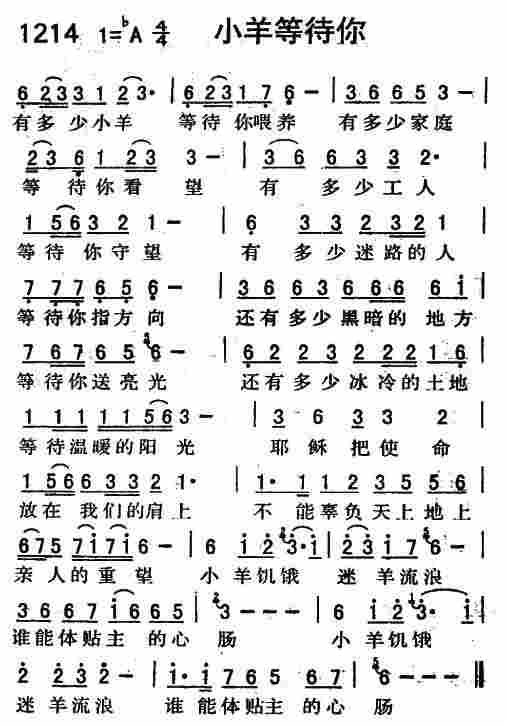 1214 1=♭A 4/4 小羊等待你
6 2 3 3 1 2 3· | 6 2 3 1 7 6 – | 3 6 6 5 3 – |
有多 少小羊 等待 你喂养 有多少家庭
2 3 6 1 2 3 3 – | 3 6 6 3 3 2· |
等 待你看 望 有 多少工人
1 5 6 3 2 1 – | 6 3 3 2 3 2 1 |
等待 你守望 有 多少迷路的人
7 7 7 6 5 6 – | 3 6 6 3 6 6 6 6 i |
等待你指方向 还有多少黑暗的 地方
7 6 6 7 6 5 6 – | 6 2 2 3 2 2 2 1 6 |
等待你送亮光 还有多少冰冷的土地
1 1 1 1 1 5 6 3 – | 3 6 3 3 2 |
等待温暖的阳 光 耶 稣 把使 命
1 5 6 6 3 3 2 1· | 1· 1 1 2 3 5 5 6 |
放在 我们的肩上 不 能辜负天上地上
6 7 5 7 i 7 i 6 – | 6 i 2 3· i | 2 3 5 5 6 |
亲 人的重望 小羊饥饿 迷 羊流浪
3 6 6 7 i 6 6 5 | 3 – – – | 6 i 2 3· i |
谁能体贴主 的心 肠 小羊饥饿
2 2 3 2 – | i· i 7 6 5 6 7 | 6 – – – ‖
迷 羊流浪 谁 能体贴主 的 心 肠